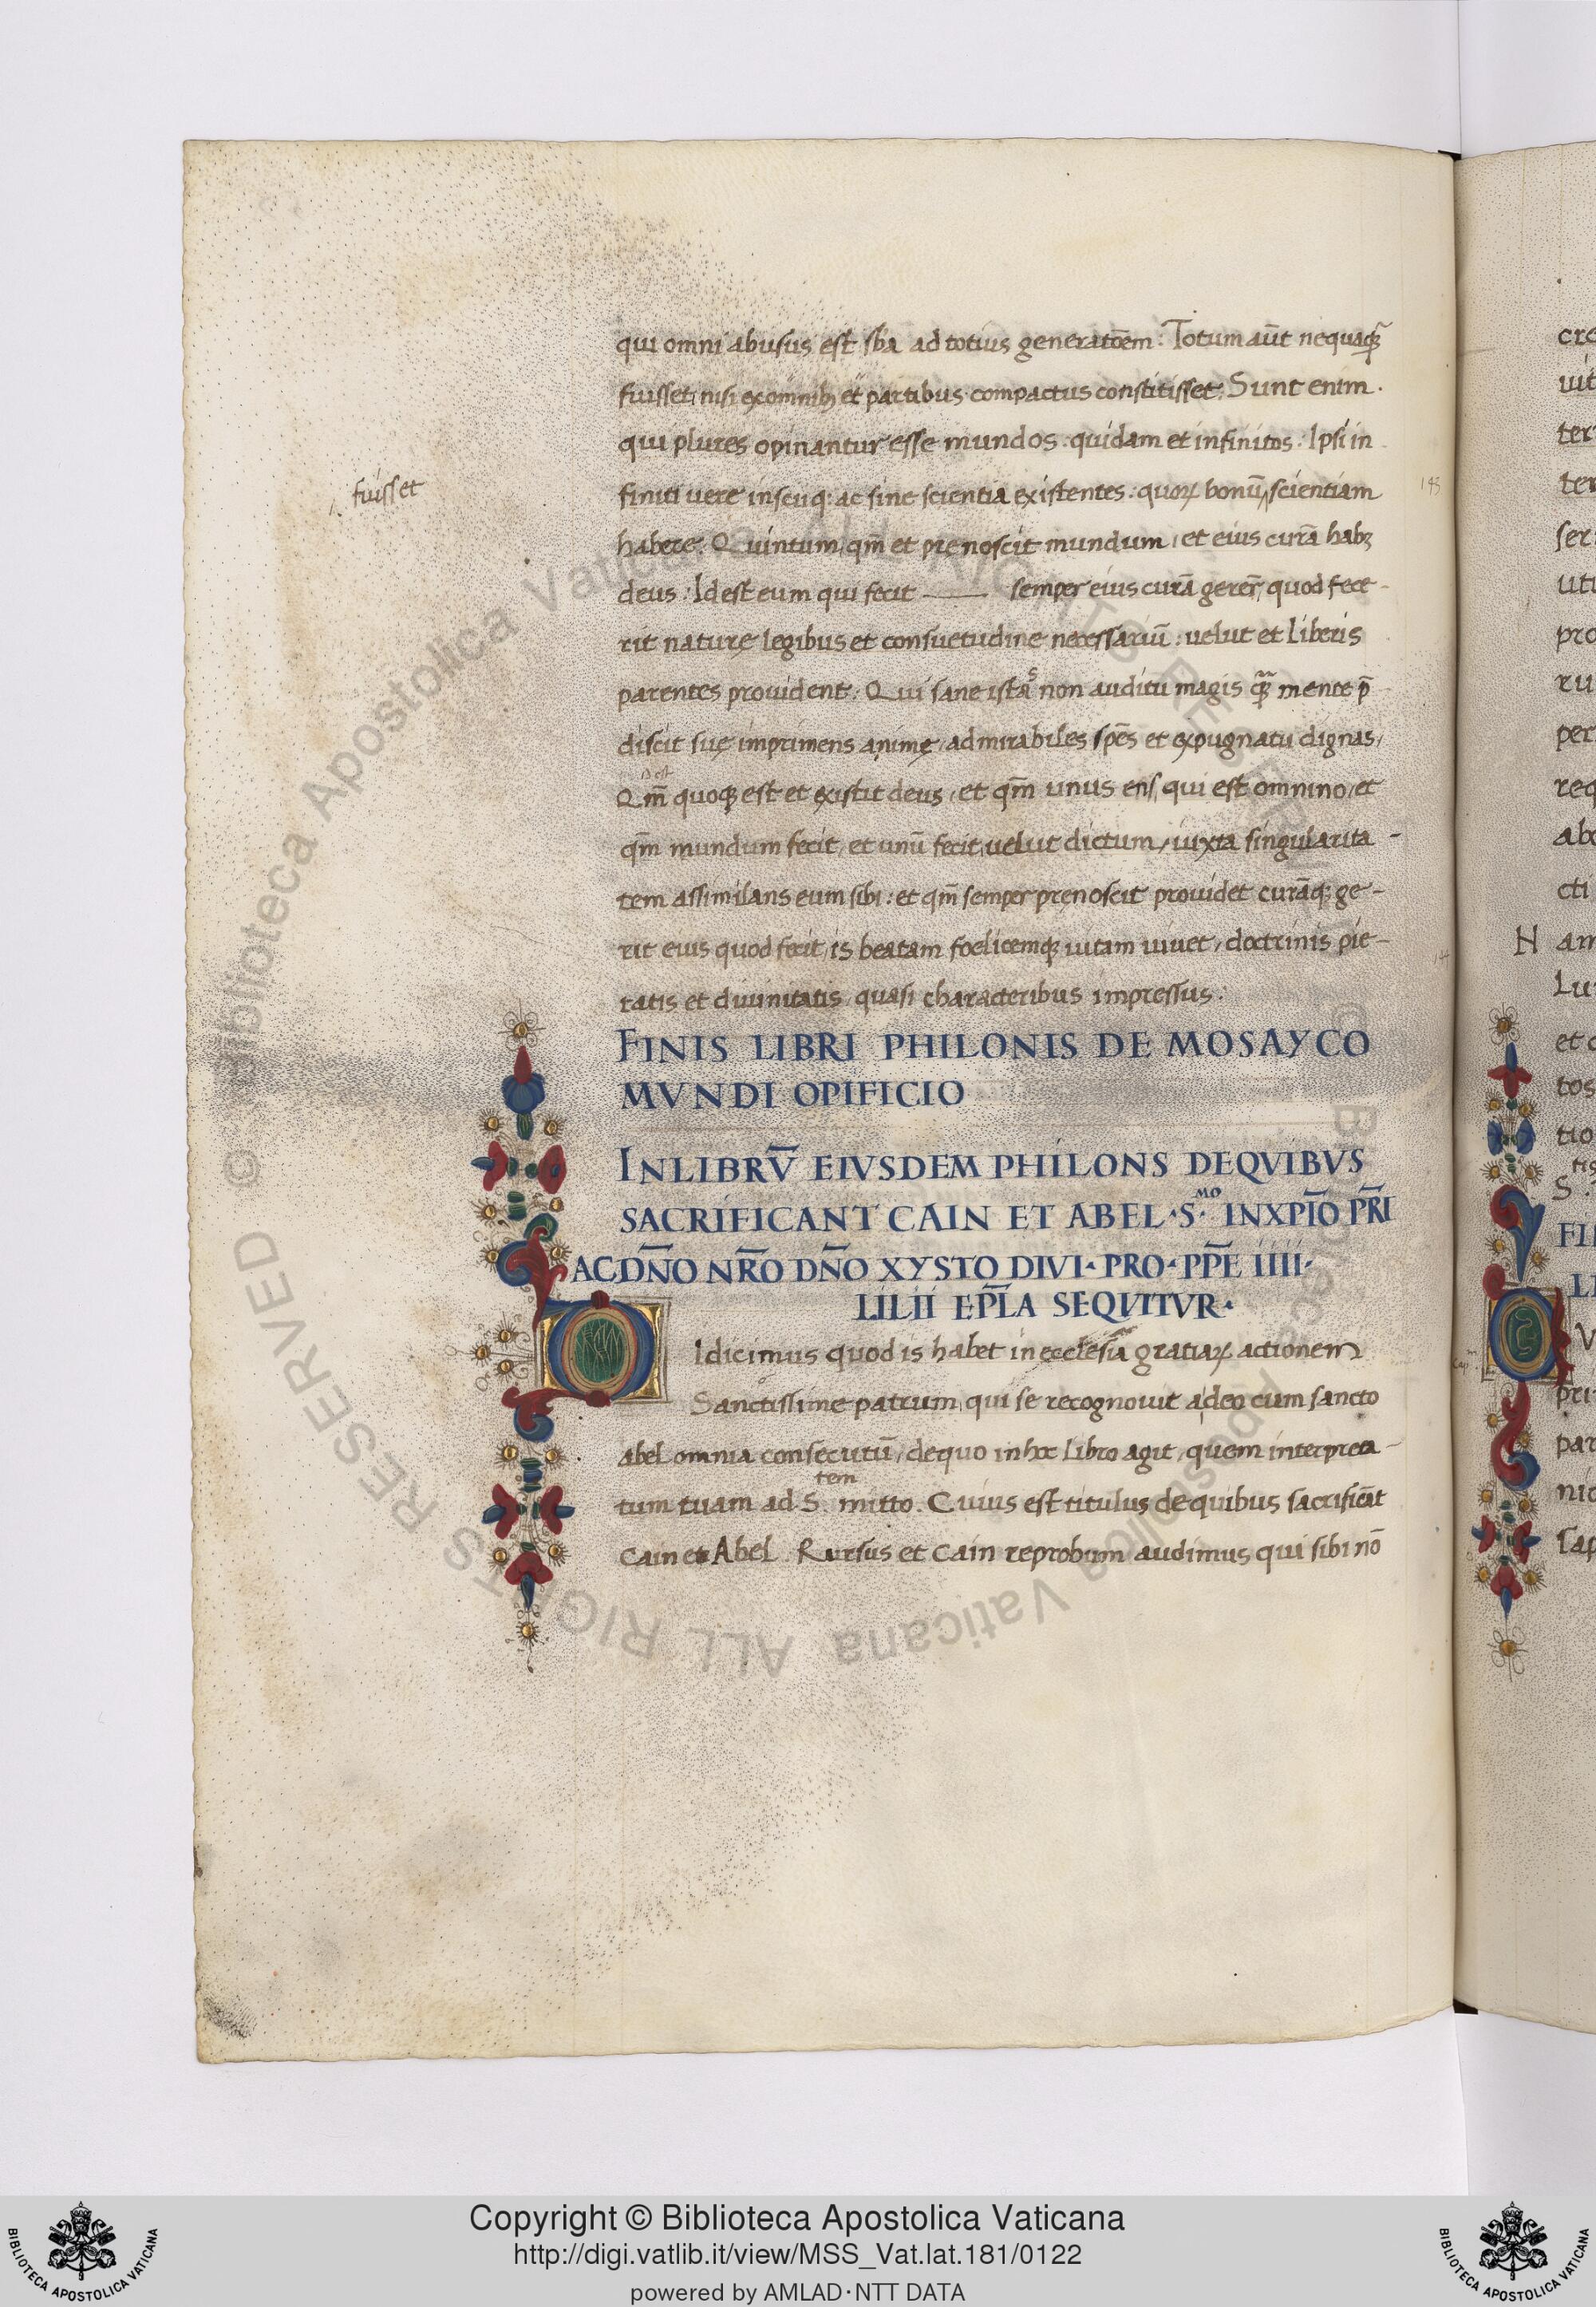 qui omni abusus est sb̄a ad totius generatōem: Totum aūt nequaqꝫ̄
fuisset, nisi ex omnibꝫ et partibus compactus constitisset. Sunt enim
qui plures opinantur esse mundos: quidam et infinitos: Ipsi in
finiti uere inscuqꝫ: ac sine scientia existentes: quoꝝ bonū ʌ scientiam
fuisset
habere. Quintum, qm̄ et prę noscit mundum, et eius curā habꝫ
deus: Idest eum qui fecit —— semper eius curā gerer̄, quod fece-
rit naturę legibus et consuetudine necessariū: uelut et liberis
parentes prouident. Qui sane ista s non auditu magis qꝫ̄ mente p̄
discit suę imprimens animę, admirabiles spēs et expugnatu dignas,
Qm̄ quoqꝫ est et existit deus, et qm̄ unus ens, qui est omnino, et
qm̄ mundum fecit, et unū fecit, uelut dictum, iuxta singularita-
tem assimilans eum sibi: et qm̄ semper pręnoscit prouidet curāqꝫ ge-
rit eius quod fecit, is beatam foelicemqꝫ uitam uiuet, doctrinis pie-
tatis et diuinitatis, quasi characteribus impressus.
FINIS LIBRI PHILONIS DE MOSAYCO
MVNDI OPIFICIO
INLIBRV̄ EIVSDEM PHILONS DEQVIBVS
SACRIFICANT CAIN ET ABEL·S·MO INXPĪO PR̄I
ACDN̄O NR̄O DN̄O XYSTO DIVI·PRO·PP̄E IIII·
LILII EPL̄A SEQVITVR·
O Idicimus quod is habet in ecclesia gratiaꝝ actionem
Sanctissime patrum, qui se recognouit a deo cum sancto
abel omnia consecutū, dequo in hoc libro agit, quem interpreta-
tum tuam ad S.tem mitto. Cuius est titulus dequibus sacrificāt
Cain et Abel Rursus et Cain reprobum audimus qui sibi nō
Copyright © Biblioteca Apostolica Vaticana
http://digi.vatlib.it/view/MSS_Vat.lat.181/0122
powered by AMLAD·NTT DATA